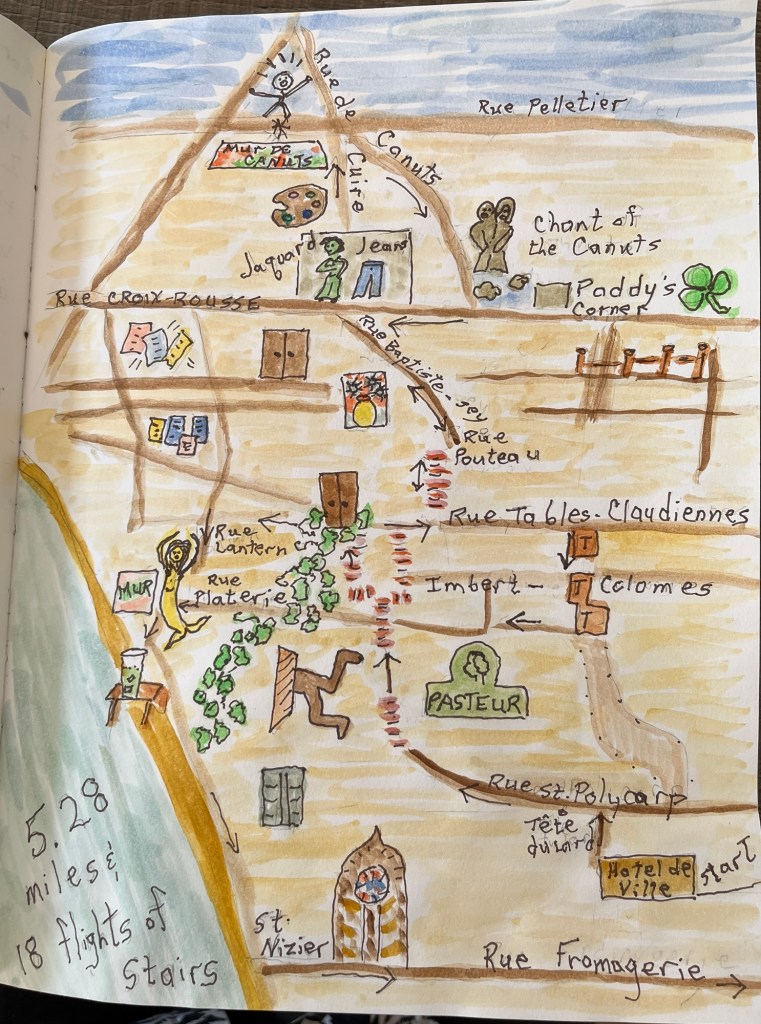 Rue de
Cuire
Rue Pelletier
Canuts
MUR DE
CANUTS
Chant of
the Canuts
Jaquard
Jeans
Paddy's
Corner
Rue CROIX-ROUSSE
Rue Baptiste-Sey
Rue
Pouteau
Rue Tables-Claudiennes
Rue
Lantern
T
MUR
Rue
Platerie
Imbert-
T
Colomes
T
PASTEUR
Rue St. Polycarp
Tête
du lard
Hotel de
Ville
START
5.28
miles &
18 flights of
Stairs
St.
Nizier
Rue Fromagerie